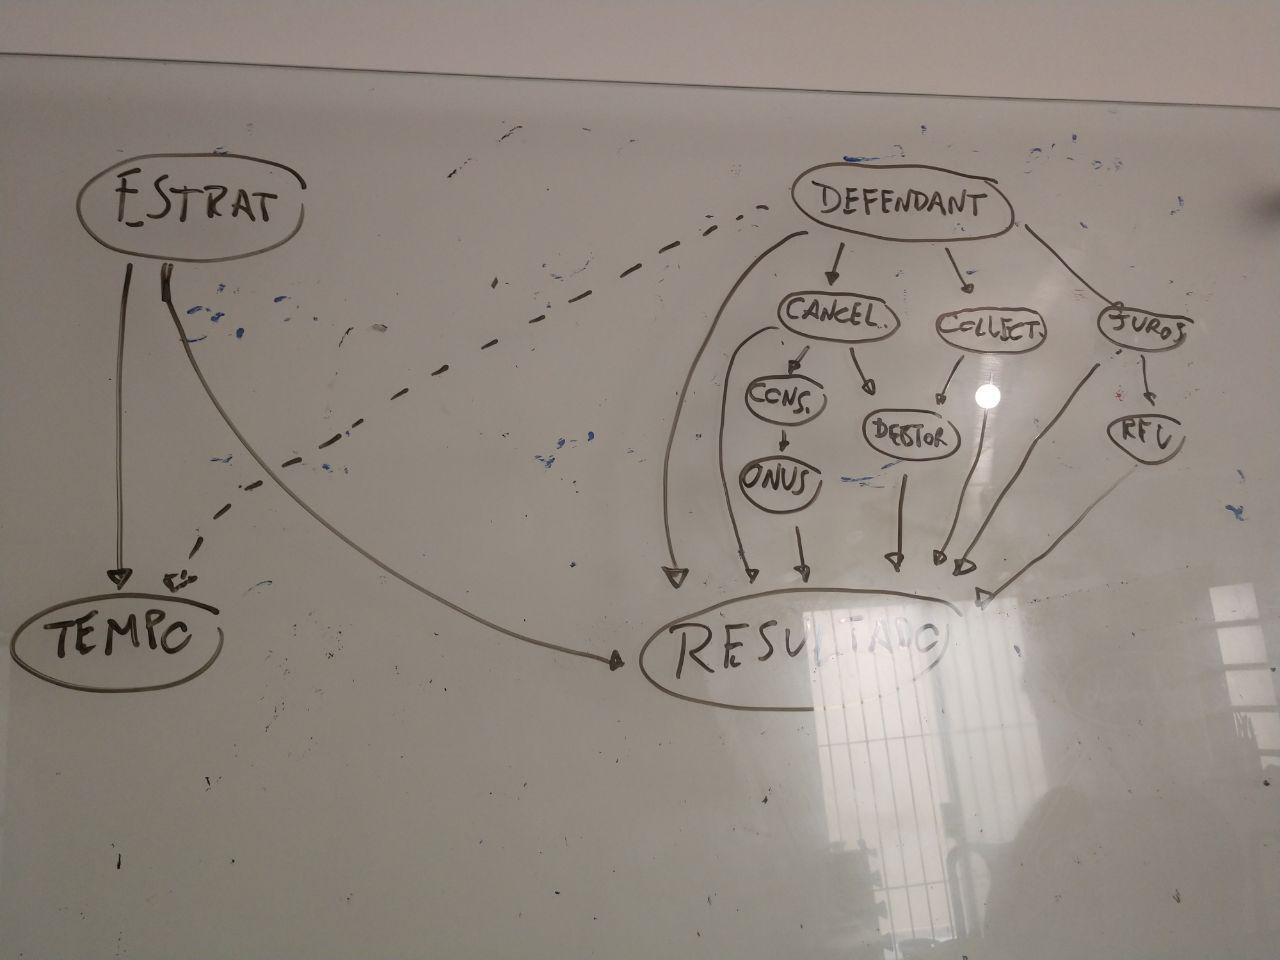 ESTRAT
DEFENDANT
CANCEL.
COLLECT.
JUROS
CONS.
DEBTOR
ONUS
TEMPO
RESULTADO